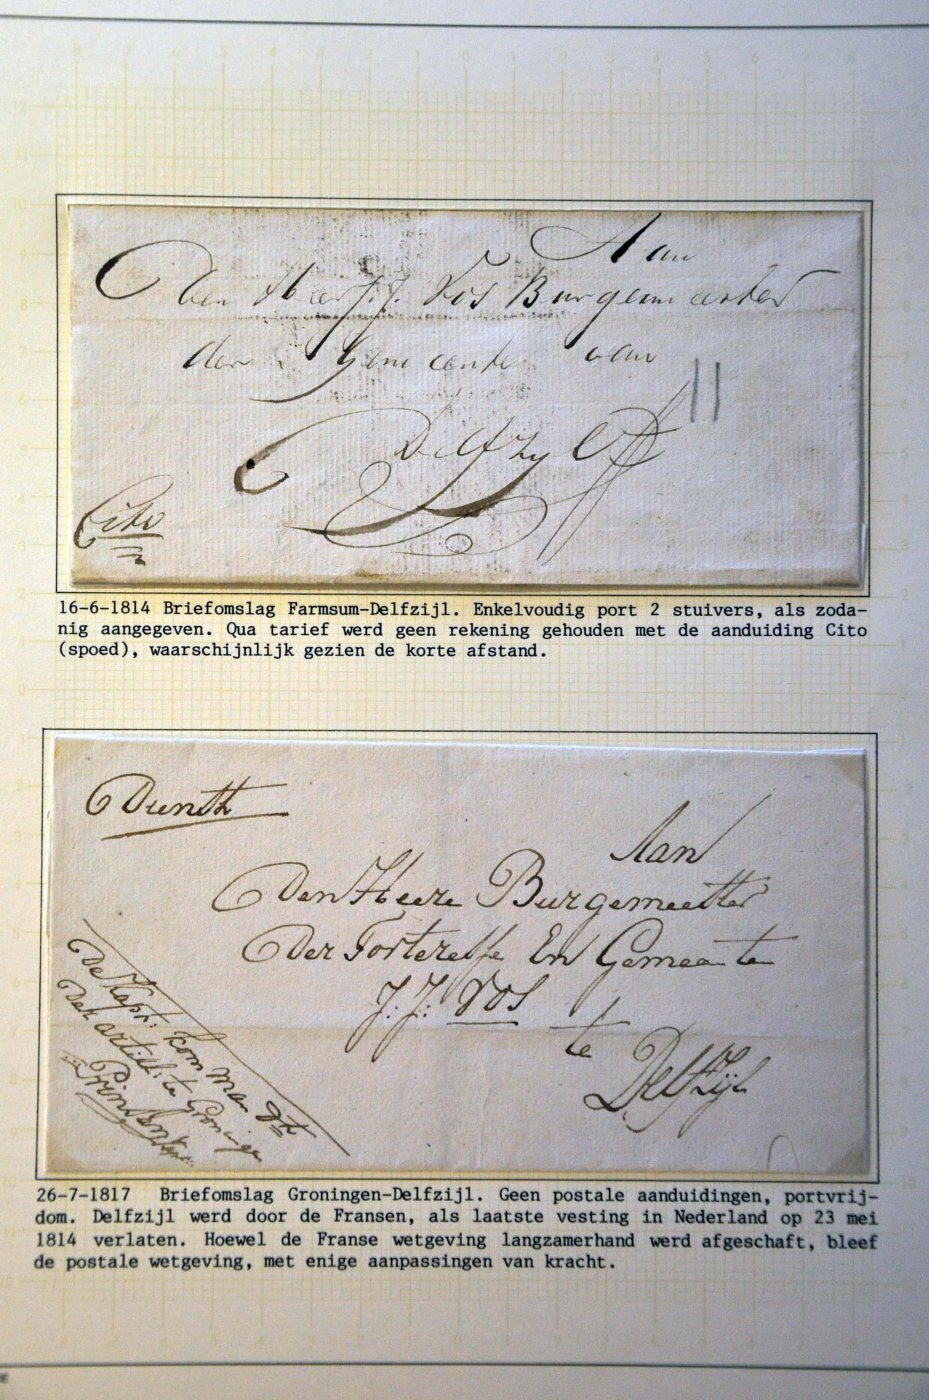 Aan
Den Heer J. J. Vos Burgemeester
der Gemeente van
Delfzyl
11
Cito
16-6-1814 Briefomslag Farmsum-Delfzijl. Enkelvoudig port 2 stuivers, als zoda-
nig aangegeven. Qua tarief werd geen rekening gehouden met de aanduiding Cito
(spoed), waarschijnlijk gezien de korte afstand.
Dienst
Aan
Den Heere Burgemeester
Der Forteresse En Gemeente
J. J. Vos
te
Delfzijl
De Kapt. komman dt
der artill. te Groningen
26-7-1817 Briefomslag Groningen-Delfzijl. Geen postale aanduidingen, portvrij-
dom. Delfzijl werd door de Fransen, als laatste vesting in Nederland op 23 mei
1814 verlaten. Hoewel de Franse wetgeving langzamerhand werd afgeschaft, bleef
de postale wetgeving, met enige aanpassingen van kracht.